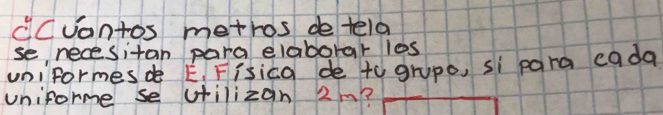 ¿Cuántos metros de tela
se necesitan para elaborar los
uniformes de E. Física de tu grupo, si para cada
uniforme se utilizan 2m?